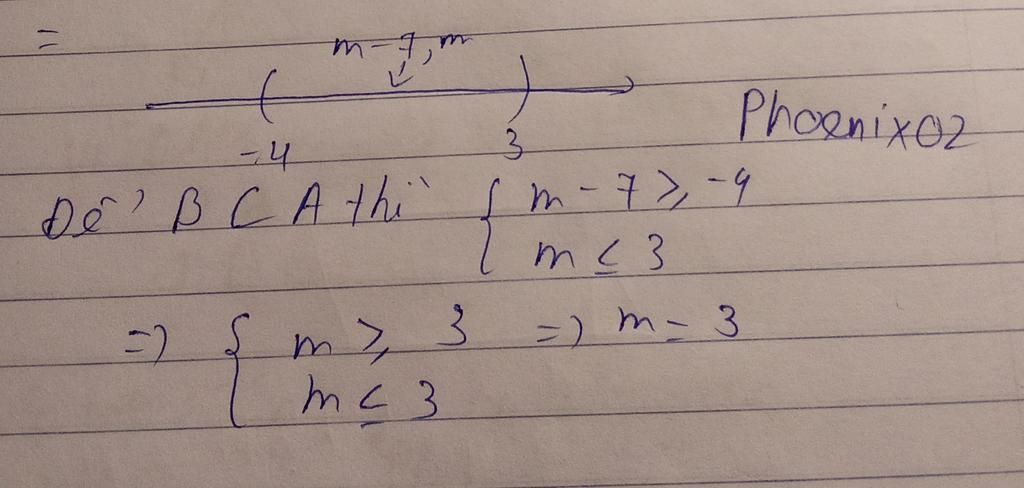 =
m-7, m
-4 3
Phoenix02
Để B ⊂ A thì { m - 7 ≥ -4
m ≤ 3
=> { m ≥ 3 => m = 3
m ≤ 3